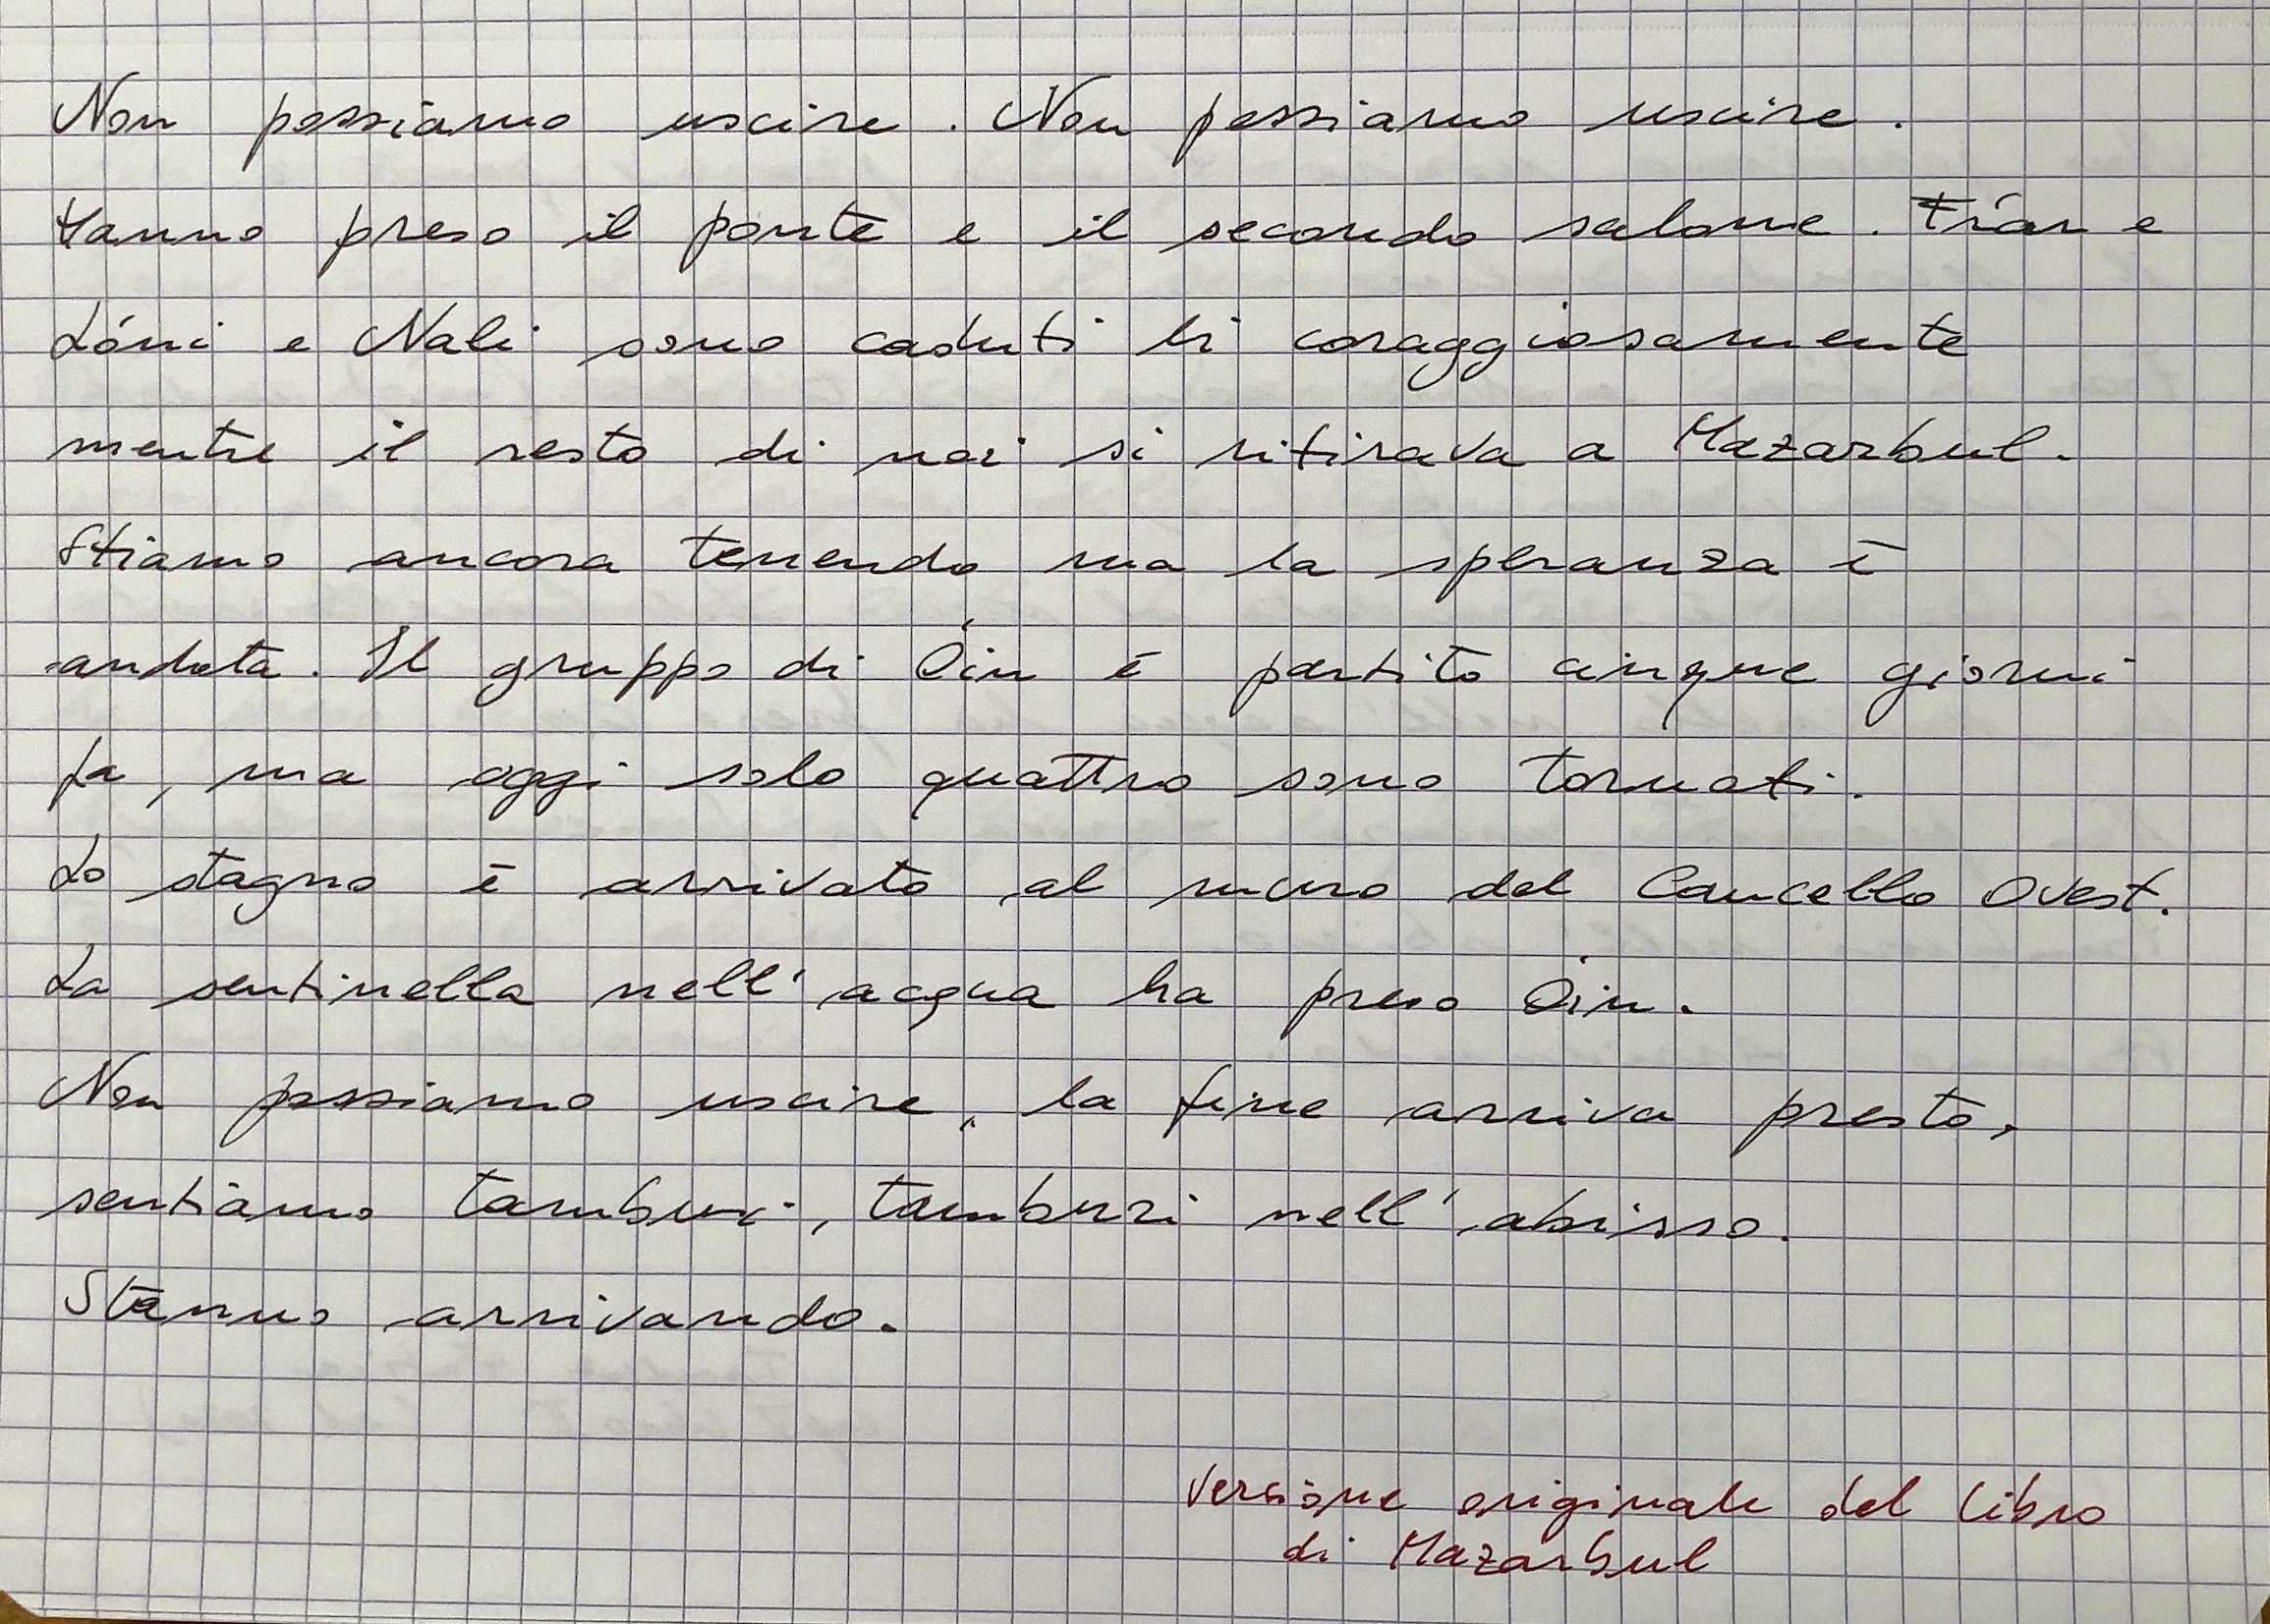 Non possiamo uscire. Non possiamo uscire.
Hanno preso il ponte e il secondo salone. Frár e
Lóni e Nali sono caduti lì coraggiosamente
mentre il resto di noi si ritirava a Mazarbul.
Stiamo ancora tenendo ma la speranza è
andata. Il gruppo di Óin è partito cinque giorni
fa, ma oggi solo quattro sono tornati.
Lo stagno è arrivato al muro del Cancello Ovest.
La sentinella nell'acqua ha preso Óin.
Non possiamo uscire, la fine arriva presto,
sentiamo tamburi, tamburi nell'abisso.
Stanno arrivando.
Versione originale del libro
di Mazarbul